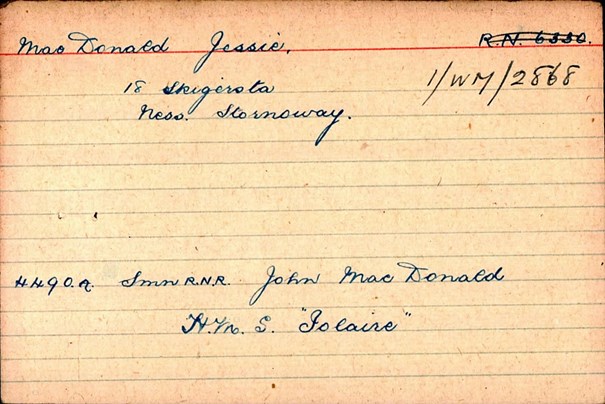 Mac Donald Jessie. R.N. 6330.
18 Skigersta 1/WM/2868
Ness. Stornoway.
4490.A. Smn R.N.R. John Mac Donald
H.M. S. "Iolaire"